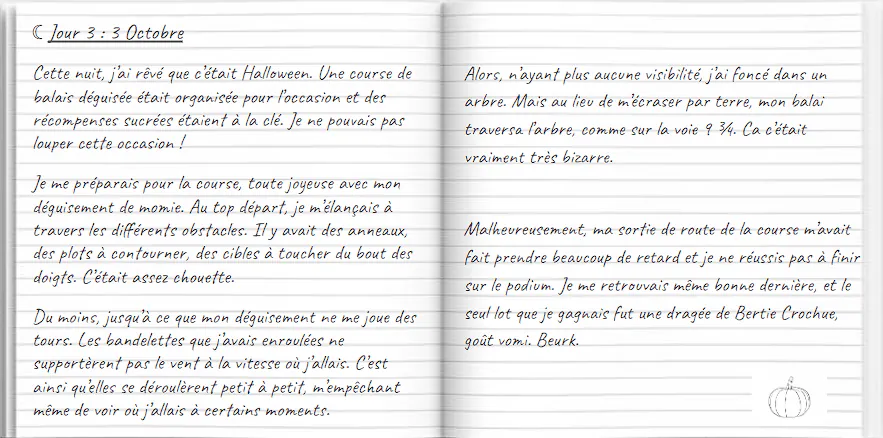 Jour 3 : 3 Octobre
Cette nuit, j'ai rêvé que c'était Halloween. Une course de
balais déguisée était organisée pour l'occasion et des
récompenses sucrées étaient à la clé. Je ne pouvais pas
louper cette occasion !
Je me préparais pour la course, toute joyeuse avec mon
déguisement de momie. Au top départ, je m'élançais à
travers les différents obstacles. Il y avait des anneaux,
des plots à contourner, des cibles à toucher du bout des
doigts. C'était assez chouette.
Du moins, jusqu'à ce que mon déguisement ne me joue des
tours. Les bandelettes que j'avais enroulées ne
supportèrent pas le vent à la vitesse où j'allais. C'est
ainsi qu'elles se déroulèrent petit à petit, m'empêchant
même de voir où j'allais à certains moments.
Alors, n'ayant plus aucune visibilité, j'ai foncé dans un
arbre. Mais au lieu de m'écraser par terre, mon balai
traversa l'arbre, comme sur la voie 9 ¾. Ca c'était
vraiment très bizarre.
Malheureusement, ma sortie de route de la course m'avait
fait prendre beaucoup de retard et je ne réussis pas à finir
sur le podium. Je me retrouvais même bonne dernière, et le
seul lot que je gagnais fut une dragée de Bertie Crochue,
goût vomi. Beurk.